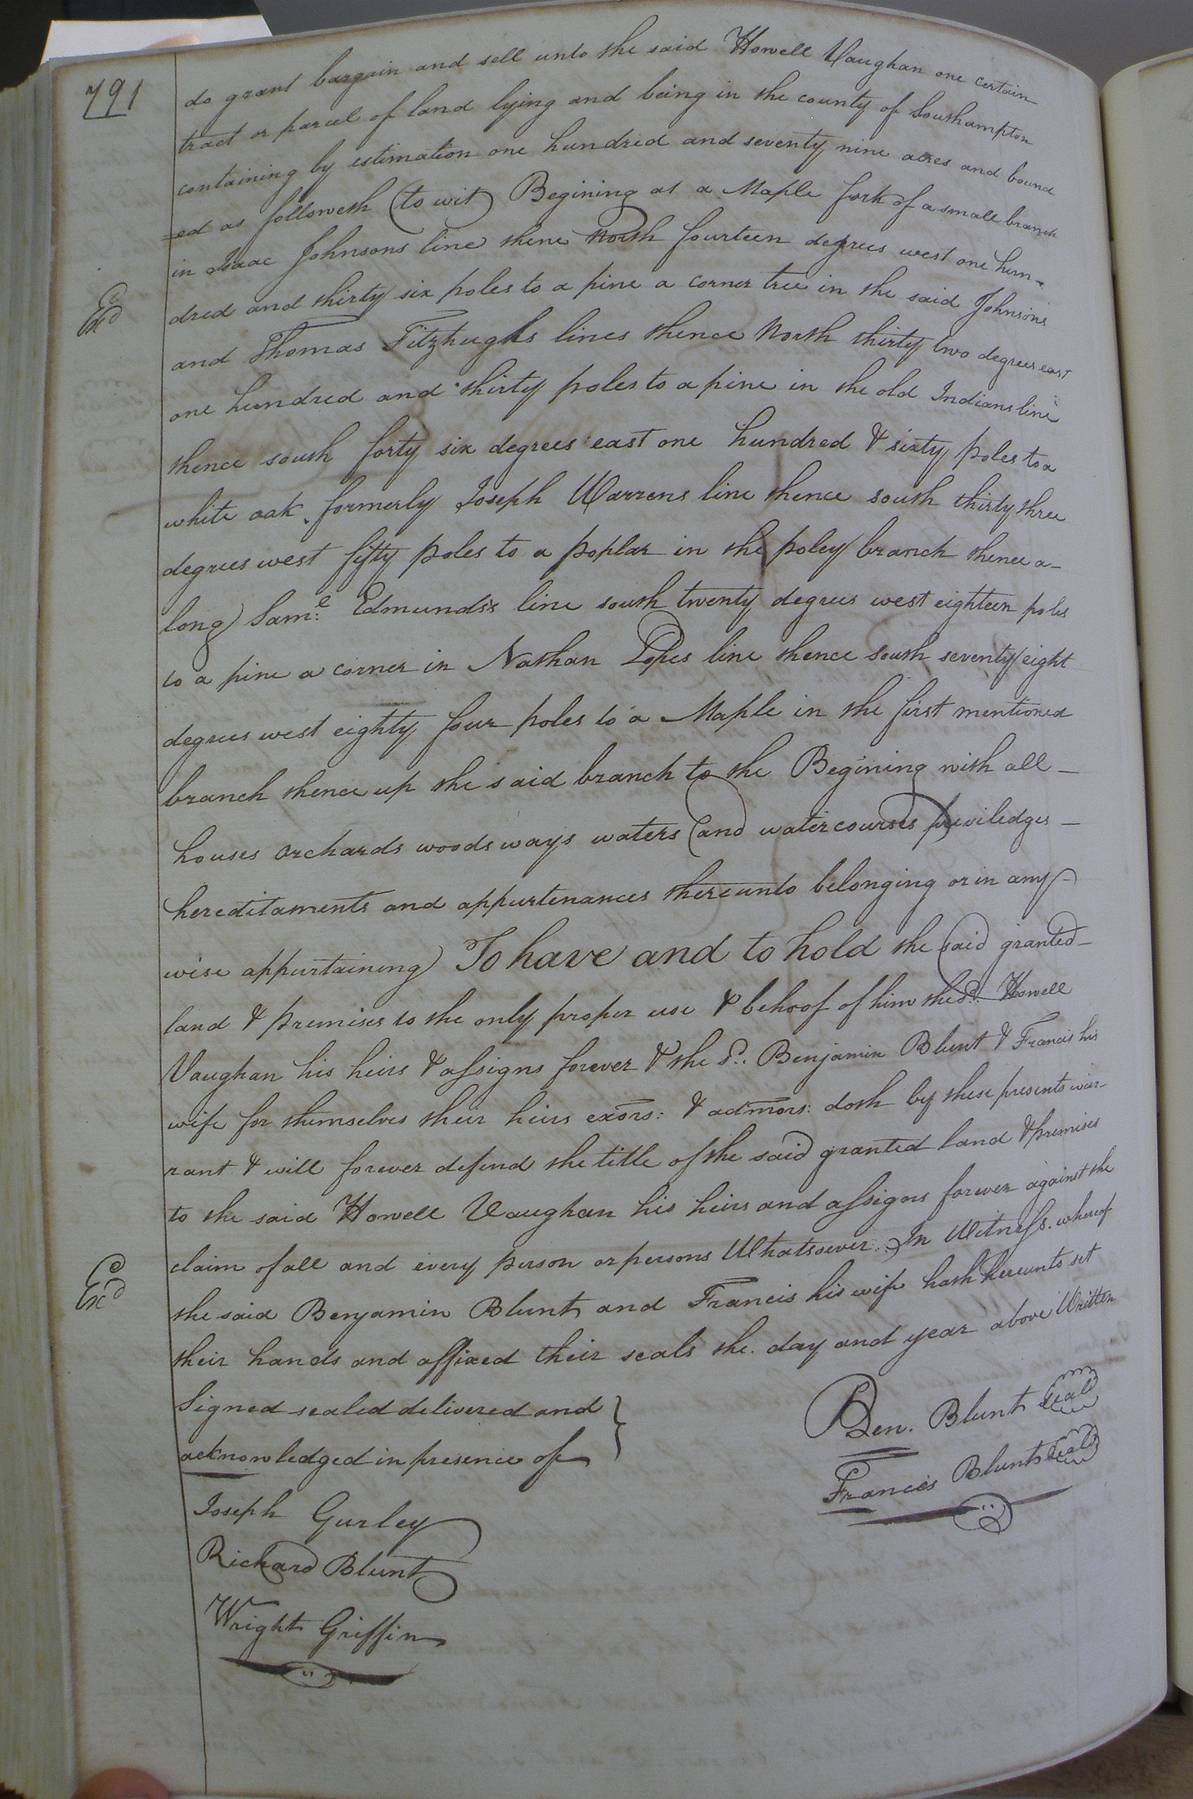 791
do grant bargain and sell unto the said Howell Vaughan one certain
tract or parcel of land lying and being in the county of Southampton
containing by estimation one hundred and seventy nine acres and bound
=ed as followeth (to wit) Begining at a Maple fork of a small branch
in Isaac Johnsons line thenc North fourteen degrees west one hun-
dred and thirty six poles to a pine a corner tree in the said Johnsons
Exd
and Thomas Fitzhughs lines thence North thirty two degrees east
one hundred and thirty poles to a pine in the old Indians line
thence south forty six degrees east one hundred & sixty poles to a
white oak formerly Joseph Warrens line thence south thirty three
degrees west fifty poles to a poplar in the poley branch thence a-
long Saml. Edmunds's line south twenty degrees west eighteen poles
to a pine a corner in Nathan Popes line thence south seventy eight
degrees west eighty four poles to a Maple in the first mentioned
branch thence up the said branch to the Begining with all -
houses orchards woods ways waters and watercourses priviledges -
hereditaments and appurtenances thereunto belonging or in any -
wise appurtaining) To have and to hold the said granted -
land & premises to the only proper use & behoof of him the sd. Howell
Vaughan his heirs & assigns forever & the sd. Benjamin Blunt & Francis his
wife for themselves their heirs exors: & admors: doth by these presents war-
rant & will forever defend the title of the said granted land & premises
to the said Howell Vaughan his heirs and assigns forever against the
claim of all and every person or persons Whatsoever. In Witness. whereof
Exd
the said Benjamin Blunt and Francis his wife hath hereunto set
their hands and affixed their seals the day and year above Written
Signed sealed delivered and
acknowledged in presence of
Ben. Blunt Seal
Francis Blunt Seal
Joseph Gurley
Richard Blunt
Wright Griffin